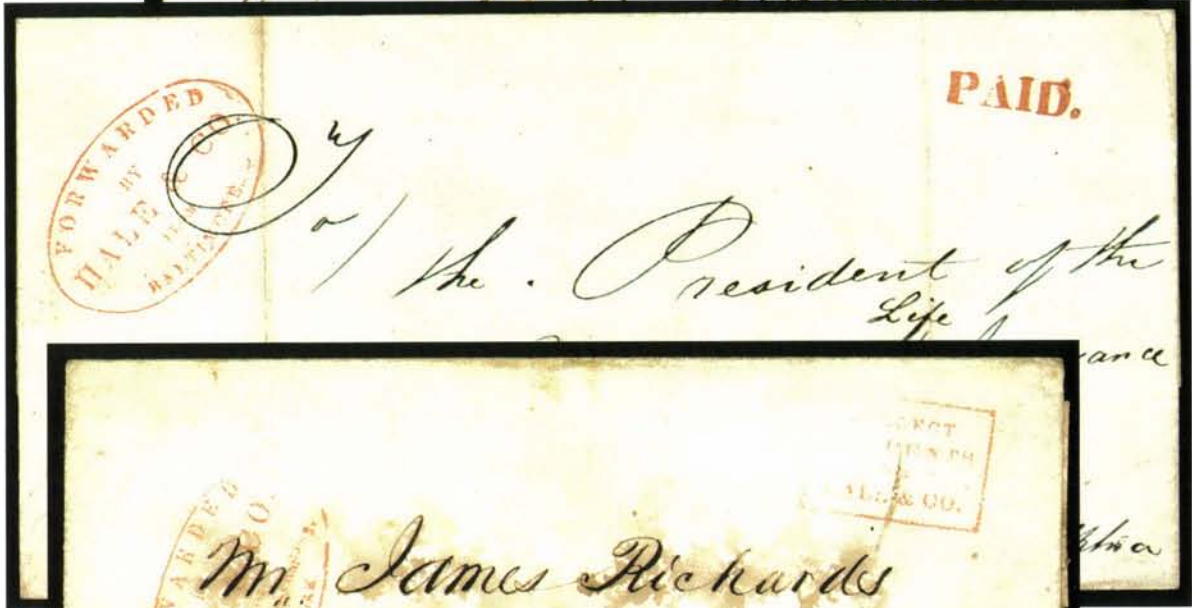 FORWARDED
BY
HALE & CO.
FROM
BALTIMORE.
PAID.
To/
the President of the
Life
ance
COLLECT
CENTS
HALE & CO.
WARDED
CO.
Mr. James Richards